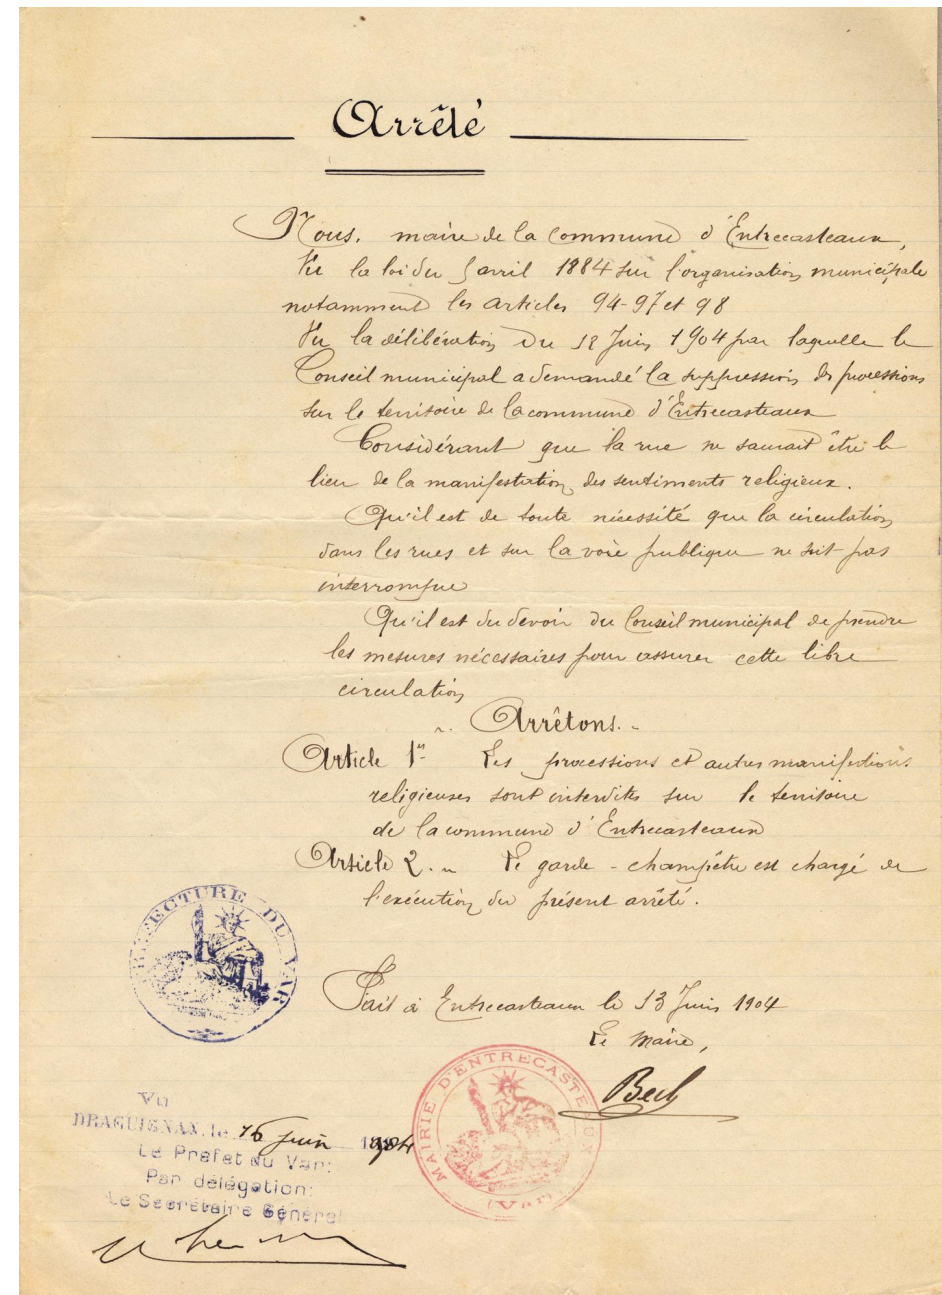 Arrêté
Nous, maire de la commune d'Entrecasteaux,
Vu la loi du 5 avril 1884 sur l'organisation municipale
notamment les articles 94-97 et 98
Vu la délibération du 12 Juin 1904 par laquelle le
Conseil municipal a demandé la suppression des processions
sur le territoire de la commune d'Entrecasteaux
Considérant que la rue ne saurait être le
lieu de la manifestation des sentiments religieux.
Qu'il est de toute nécessité que la circulation
dans les rues et sur la voie publique ne soit pas
interrompue
Qu'il est du devoir du Conseil municipal de prendre
les mesures nécessaires pour assurer cette libre
circulation
Arrêtons.
Article 1er Les processions et autres manifestations
religieuses sont interdites sur le territoire
de la commune d'Entrecasteaux
Article 2. Le garde-champêtre est chargé de
l'exécution du présent arrêté.
PREFECTURE DU VAR
Fait à Entrecasteaux le 13 Juin 1904
Le Maire,
Bech
MAIRIE D'ENTRECASTEAUX
(Var)
Vu
DRAGUIGNAN, le 16 Juin 1904
Le Prefet du Var:
Par délégation:
Le Secrétaire Général